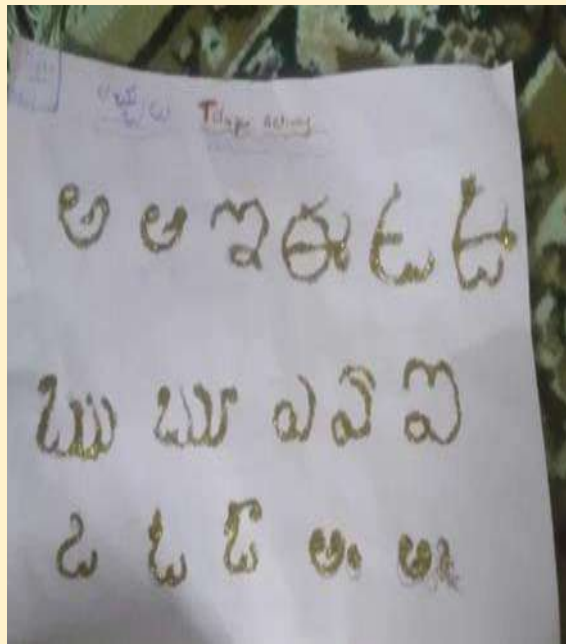 Telugu Activity
అ ఆ ఇ ఈ ఉ ఊ
ఋ ౠ ఎ ఏ ఐ
ఒ ఓ ఔ అం అః